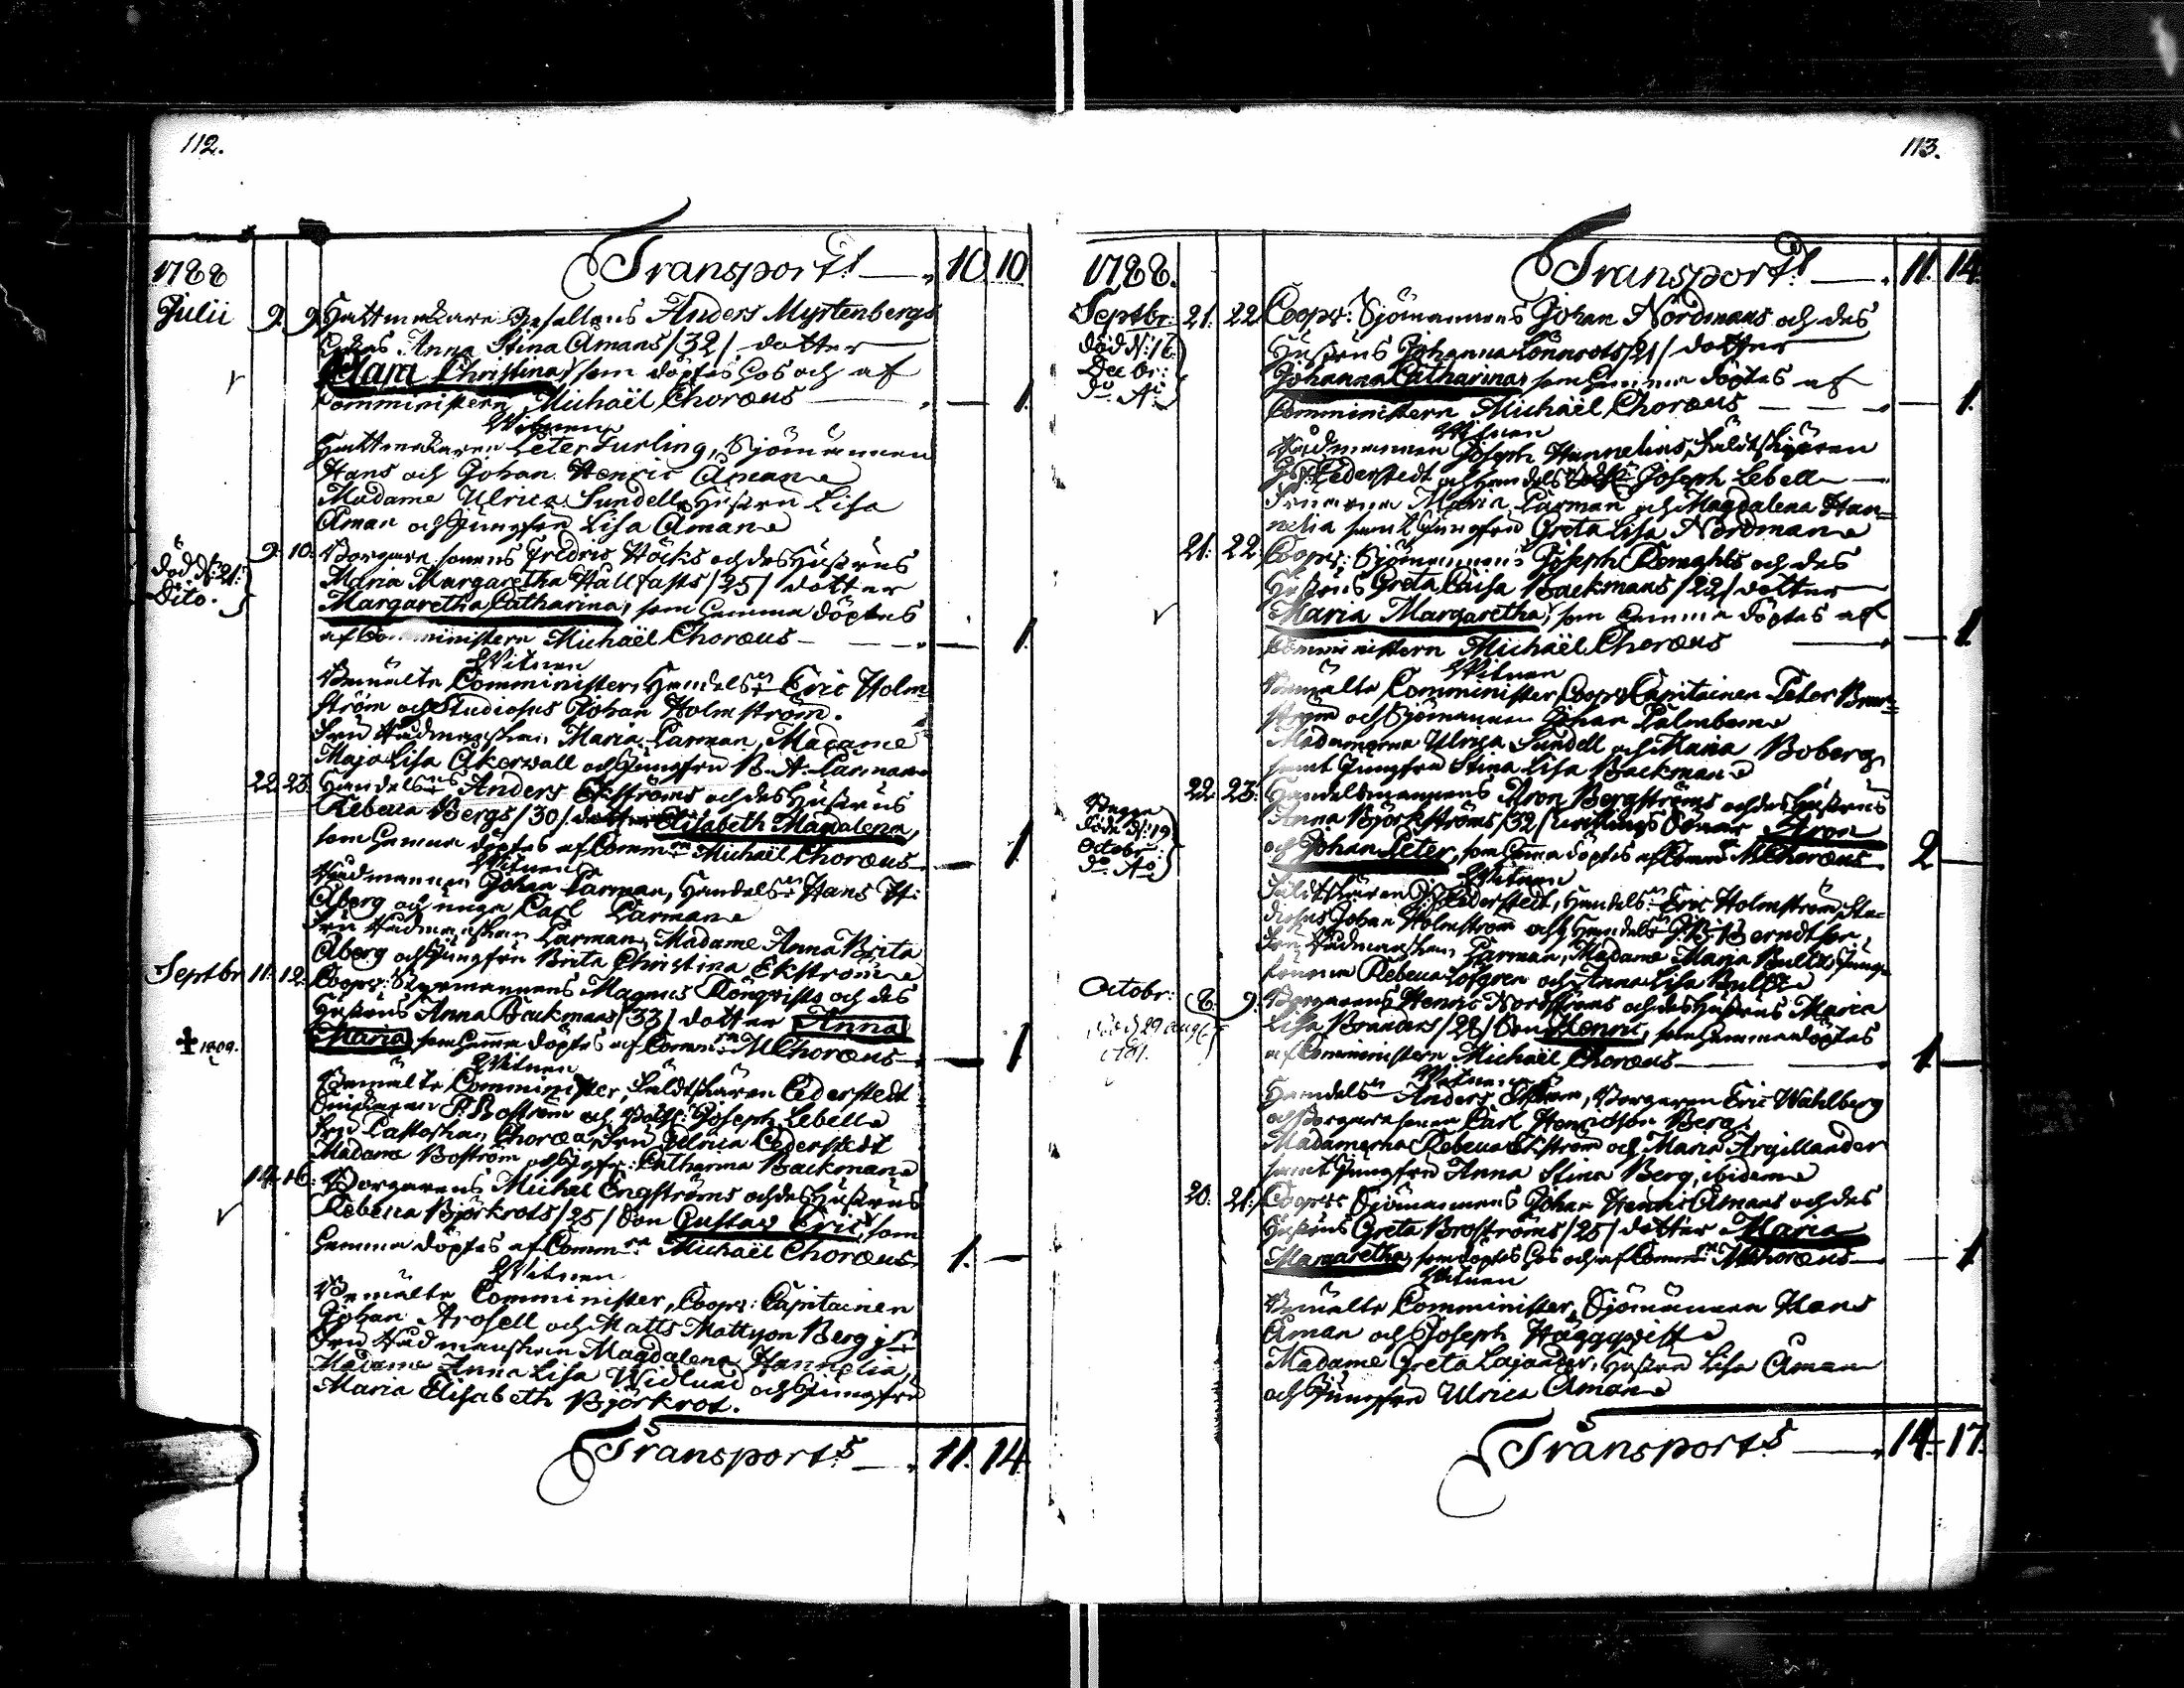 112.
Transport! 10. 10.
1788
Julii 9. 9. Hattmakare Gesällens Anders Myrtenbergs
Anna Stina Åmans /32/ dotter
Clara Christina, som döptes hos och af
Comministern Michaël Choræus 1.
Witnen
Hattmakaren Peter Turling, Sjömännen
Hans och Johan Henric Åman
Madame Ulrica Sundell, Hustru Lisa
Åman och Jungfru Lisa Åman
död d. 21. Dito. 9. 10. Borgare sonens Fredric Höcks och des Hustrus
Maria Margaretha Hallfasts /25/ dotter
Margaretha Catharina, som hemma döptes
af Comministern Michaël Choræus 1.
Witnen
Bemälte Comminister, Handelsm. Eric Holm=
ström och Studiosus Johan Holmström.
Fru Rådmanskan Maria Carman, Madame
Maja Lisa Åkerwall och Jungfru B. A. Carman
22. 23. Handelsm. Anders Ekströms och des Hustrus
Rebecca Bergs /30/ dotter Elisabeth Magdalena,
som hemma döptes af Comm. Michaël Choræus 1.
Witnen
Rådmannen Johan Carman, Handelsm. Hans H.
Åberg och unga Carl Carman
Fru Rådmanskan Carman, Madame Anna Brita
Åberg och Jungfru Brita Christina Ekström
Septbr 11. 12. Coopv: Styrmannens Magnus Rönqvists och des
Hustrus Anna Backmans /33/ dotter Anna
✝ 1809. Maria, som hemma döptes af Comm. M Choræus 1
Witnen
Bemälte Comminister, Fältskären Cederstedt
P. Boström och Joseph Lebell
Fru Pastorskan Choræa, Fru Ulrica Cederstedt
Madame Boström och Jgfr: Catharina Backman
14. 16. Borgarens Michel Engströms och des Hustrus
Rebecca Björkrots /25/ Son Gustav Eric, som
hemma döptes af Comm. Michaël Choræus 1.
Witnen
Bemälte Comminister, Coopv: Capitainen
Johan Arosell och Matts Mattson Berg
Fru Rådmanskan Magdalena Hannelia,
Madame Anna Lisa Widlund och Jungfru
Maria Elisabeth Björkrot.
Transport 11. 14.
113.
Transport! 11. 14.
1788.
Septbr: 21. 22. Coopv: Sjömannens Johan Nordmans och des
död d. 16. Decbr: do Ao Hustrus Johanna Lönnrots /21/ dotter
Johanna Catharina, som hemma döptes af
Comministern Michaël Choræus 1.
Witnen
Rådmannen Joseph Hannelius, Fältskären
Cederstedt och Handels Joseph Lebell
Fruarna Maria Carman och Magdalena Han=
nelia samt Jungfru Greta Lisa Nordman
21. 22. Coopv: Sjömannens Joseph Remahls och des
Hustrus Greta Caisa Backmans /22/ dotter
Maria Margaretha, som hemma döptes af
Comministern Michaël Choræus 1.
Witnen
Bemälte Comminister, Coopv. Capitainen Peter
och Sjömannen Johan Palmbom
Madamerna Ulrica Sundell och Maria Boberg,
samt Jungfru Stina Lisa Backman
22. 23. Handelsmannens Aron Bergströms och des Hustrus
Begge döde d. 19 Octobr: do Ao Anna Björkströms /32/ twillings Söner Aron
och Johan Peter, som hemma döptes af Comm. M Choræus 2
Witnen
Fältskären Cederstedt, Handelsm. Eric Holmström Stu=
diosus Johan Holmström och Handelsm. Berndtson,
Fru Rådmanskan Carman, Madame Maria Jung=
fruarna Rebecca Löfgren och Anna Lisa
Octobr: 8. 9. Borgarens Henric Nordströms och des Hustrus Maria
Lisa Branders /28/ Son Henric, som hemma döptes
af Comministern Michaël Choræus 1.
Witnen
Handelsm Anders Ekström, Borgaren Eric Wahlberg
och Borgare sonen Carl Henricsson Berg.
Madamerna Rebecca Ekström och Maria Argillander
samt Jungfru Anna Stina Berg, ibidem
20. 21. Coopv: Sjömannens Johan Henric Åmans och des
Hustrus Greta Broströms /25/ dotter Maria
Margaretha, som döptes hos och af Comm. M Choræus 1
Witnen
Bemälte Comminister, Sjömännen Hans
Åman och Joseph Häggqvist
Madame Greta Lajander, Hustru Lisa Åman
och Jungfru Ulrica Åman
Transport 14. 17.